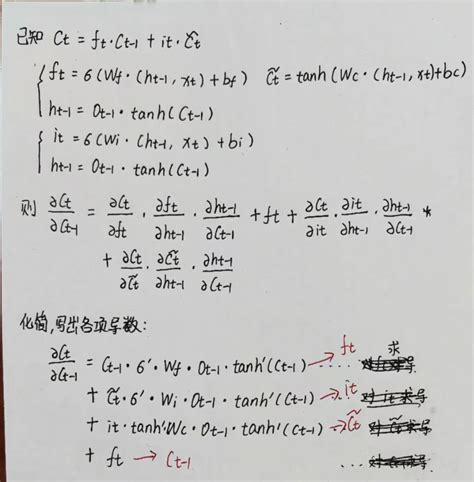 已知 Ct = ft·Ct-1 + it·C̃t
ft = σ(Wf·(ht-1, xt) + bf) C̃t = tanh(Wc·(ht-1, xt)+bc)
ht-1 = Ot-1·tanh(Ct-1)
it = σ(Wi·(ht-1, xt) + bi)
ht-1 = Ot-1·tanh(Ct-1)
则 ∂Ct/∂Ct-1 = ∂Ct/∂ft · ∂ft/∂ht-1 · ∂ht-1/∂Ct-1 + ft + ∂Ct/∂it · ∂it/∂ht-1 · ∂ht-1/∂Ct-1 *
+ ∂Ct/∂C̃t · ∂C̃t/∂ht-1 · ∂ht-1/∂Ct-1
化简,写出各项导数:
∂Ct/∂Ct-1 = Ct-1·σ'·Wf·Ot-1·tanh'(Ct-1) → ft .... 求
+ C̃t·σ'·Wi·Ot-1·tanh'(Ct-1) → it ... 对it求导
+ it·tanh'Wc·Ot-1·tanh'(Ct-1) → C̃t 对C̃t求导
+ ft → Ct-1 ...